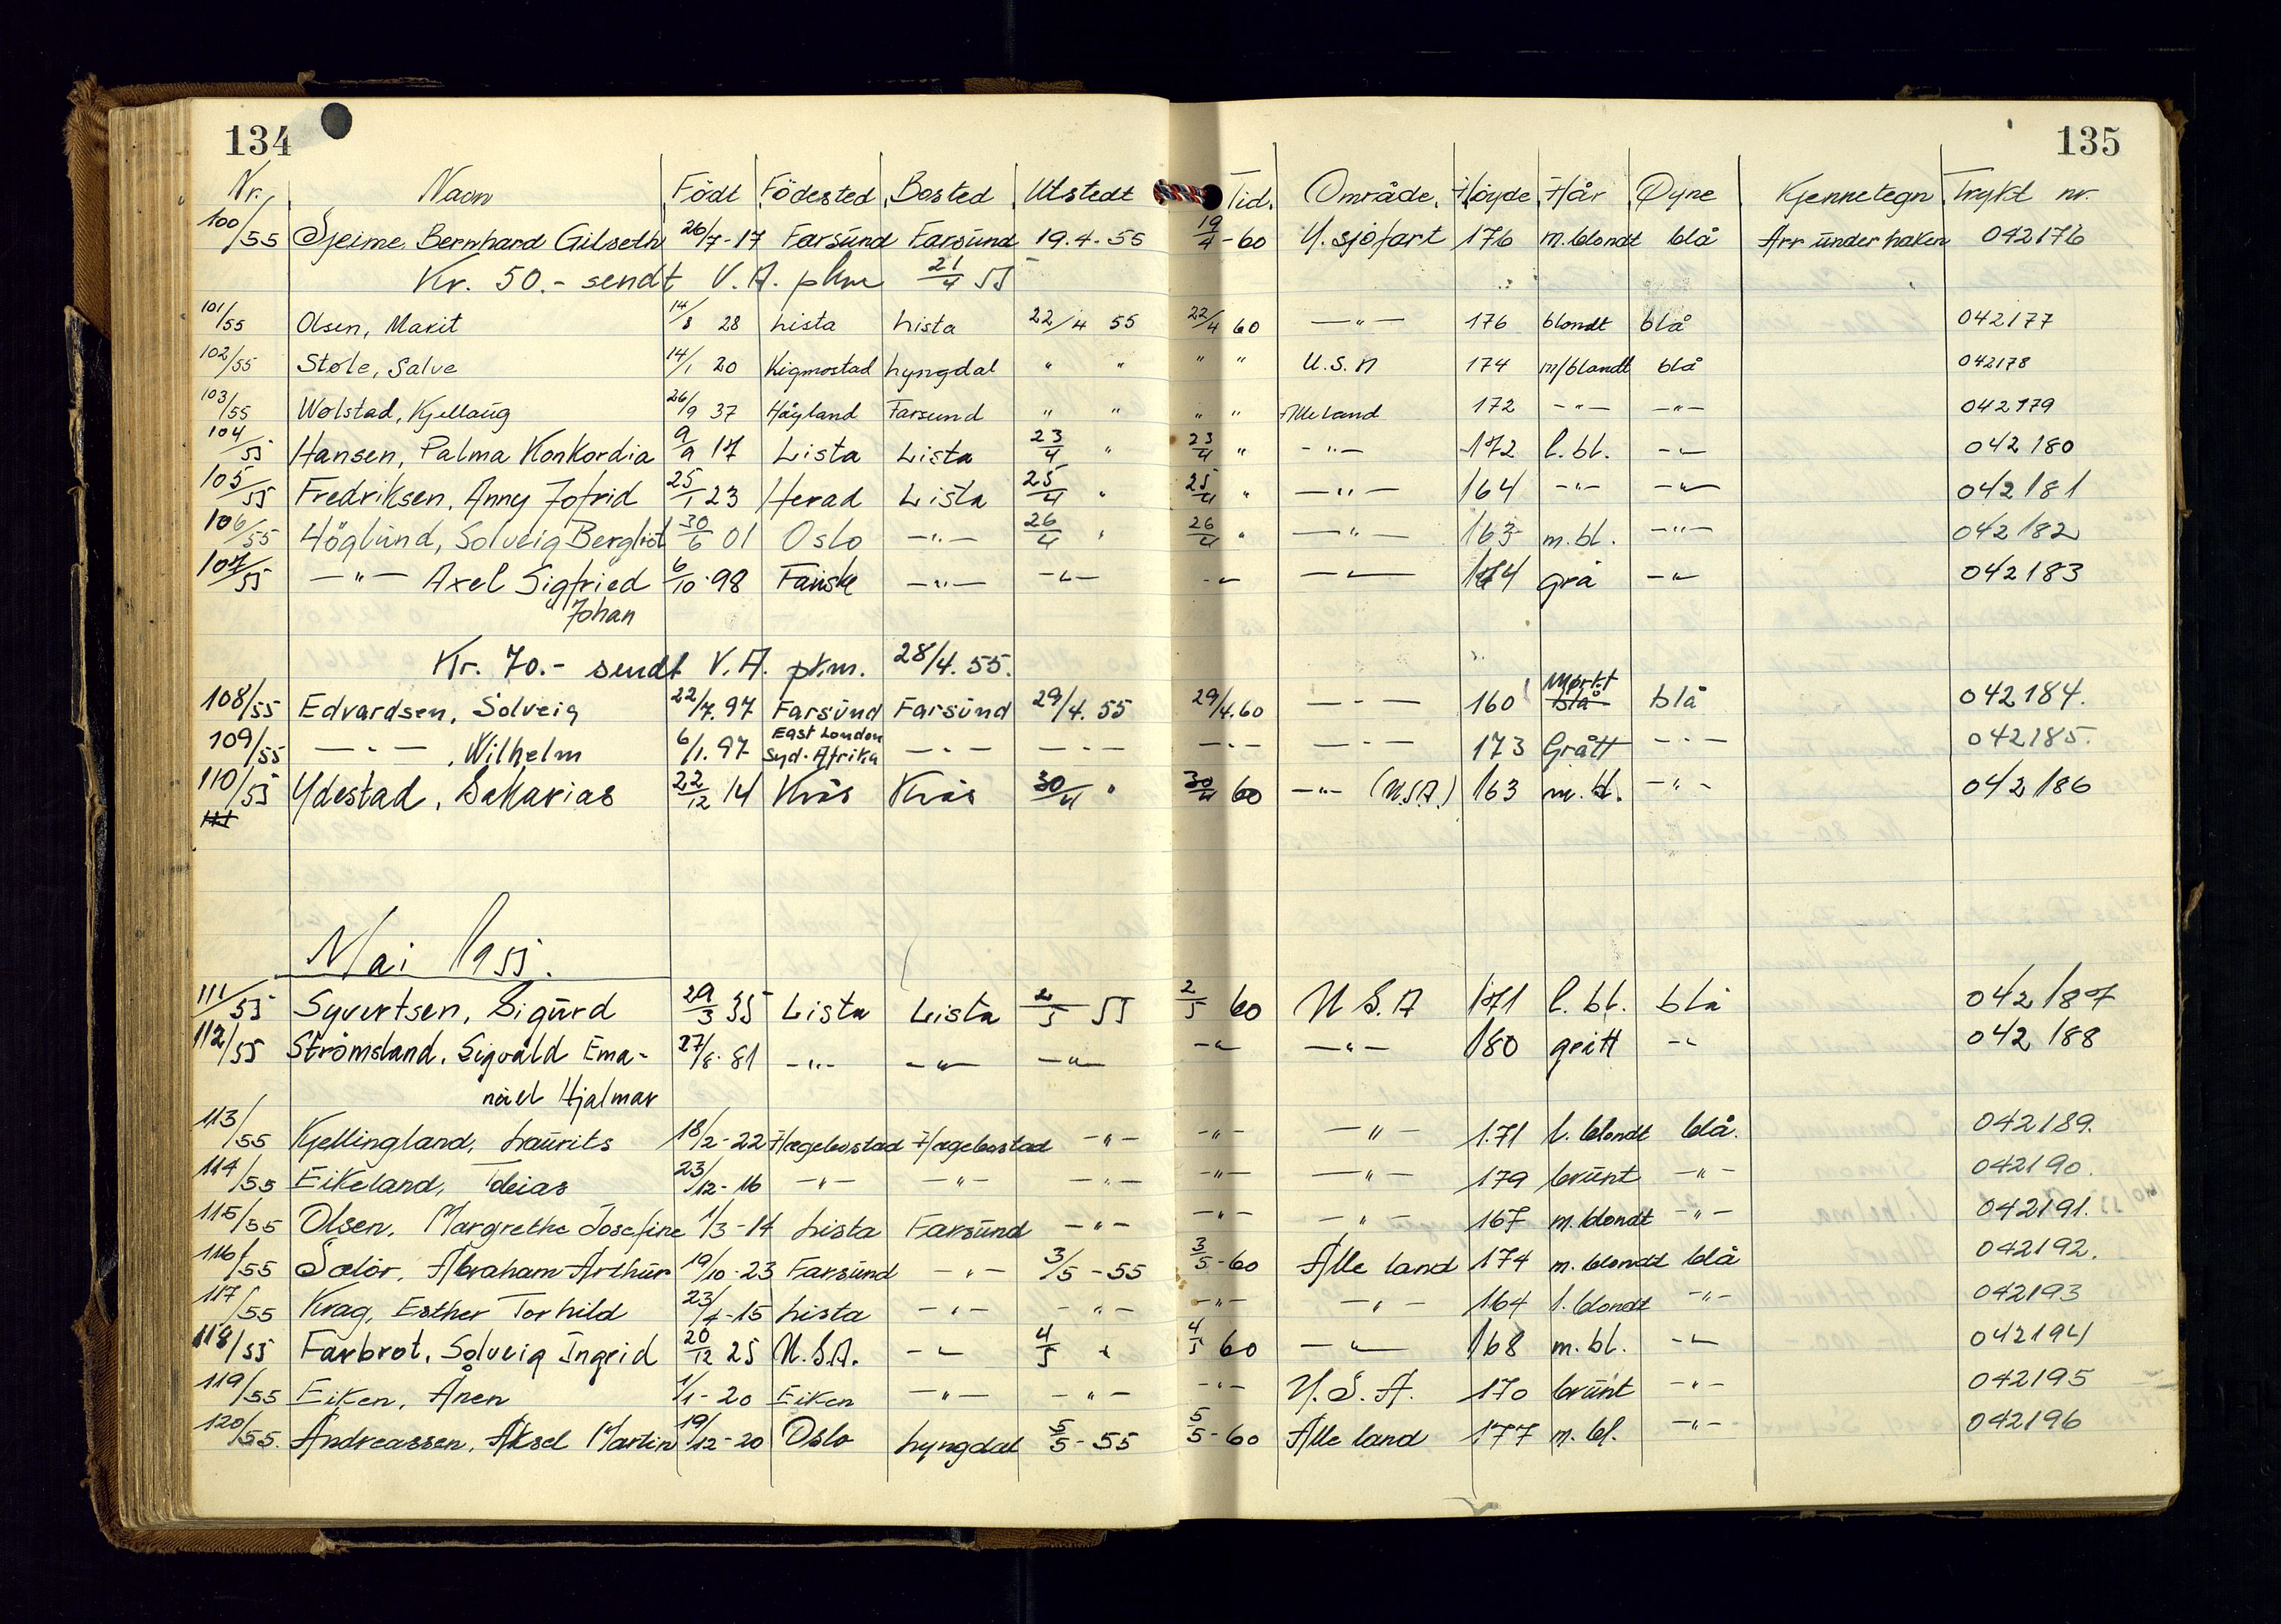 134
135
Nr. Navn Födt Födested Bosted Utstedt Tid. Område. Höyde Hår Öyne Kjennetegn Trykt nr.
100/55 Sjeime, Bernhard Gilseth 26/7-17 Farsund Farsund 19.4.55 19/4-60 U. sjöfart 176 m. blondt blå Arr under haken 042176
Kr. 50.- sendt V.A. pkm 21/4 55
101/55 Olsen, Marit 14/8 28 Lista Lista 22/4 55 22/4 60 —"— 176 blondt blå 042177
102/55 Støle, Salve 14/1 20 Kigmostad Lyngdal " " " " U.S.A 174 m/blondt blå 042178
103/55 Wolstad, Kjellaug 26/9 37 Håyland Farsund " " " " Alle land 172 —"— —"— 042179
104/55 Hansen, Palma Konkordia 9/9 17 Lista Lista 23/4 " 23/4 " —"— 172 l. bl. —"— 042180
105/55 Fredriksen, Anny Jofrid 25/1 23 Herad Lista 25/4 " 25/4 " —"— 164 —"— —"— 042181
106/55 Höglund, Solveig Bergliot 30/6 01 Oslo —"— 26/4 " 26/4 " —"— 163 m. bl. —"— 042182
107/55 —"— Axel Sigfried 6/10-98 Fauske —"— —"— —"— —"— 174 grå —"— 042183
Johan
Kr. 70.- sendt V.A. pkm. 28/4. 55.
108/55 Edvardsen, Solveig 22/7. 97 Farsund Farsund 29/4. 55 29/4.60 —"— 160 Mørkt blå blå 042184.
109/55 —"—, Wilhelm 6/1. 97 East London Syd-Afrika —"— —"— —"— —"— 173 Grått —"— 042185.
110/55 Ydestad, Sakarias 22/12 14 Kvås Kvås 30/4 " 30/4 60 —"— (U.S.A.) 163 m. bl. —"— 042186
111
Mai 1955.
111/55 Syvertsen, Sigurd 29/3 35 Lista Lista 2/5 55 2/5 60 U.S.A 171 l. bl. blå 042187
112/55 Strömsland, Sigvald Ema- 27/8. 81 —"— —"— —"— —"— —"— 180 grått —"— 042188
nuel Hjalmar
113/55 Kjellingland, Laurits 18/2-22 Hægebostad Hægebostad —"— —"— —"— 171 l. blondt blå. 042189.
114/55 Eikeland, Tobias 23/12-16 —"— —"— —"— —"— —"— 179 brunt —"— 042190.
115/55 Olsen, Margrethe Josefine 1/3-14 Lista Farsund —"— —"— —"— 167 m. blondt —"— 042191.
116/55 Salör, Abraham Arthur 19/10-23 Farsund —"— 3/5-55 3/5-60 Alle land 174 m. blondt blå 042192.
117/55 Krag, Esther Torhild 23/4-15 Lista —"— —"— —"— —"— 164 l. blondt —"— 042193
118/55 Farbrot, Solveig Ingrid 20/12 25 U.S.A. —"— 4/5 " 4/5 60 —"— 168 m. bl. —"— 042194
119/55 Eiken, Ånen 1/1-20 Eiken —"— —"— —"— U.S.A. 170 brunt —"— 042195
120/55. Andreassen, Aksel Martin 19/12-20 Oslo Lyngdal 5/5-55 5/5-60 Alle land 177 m. bl. —"— 042196